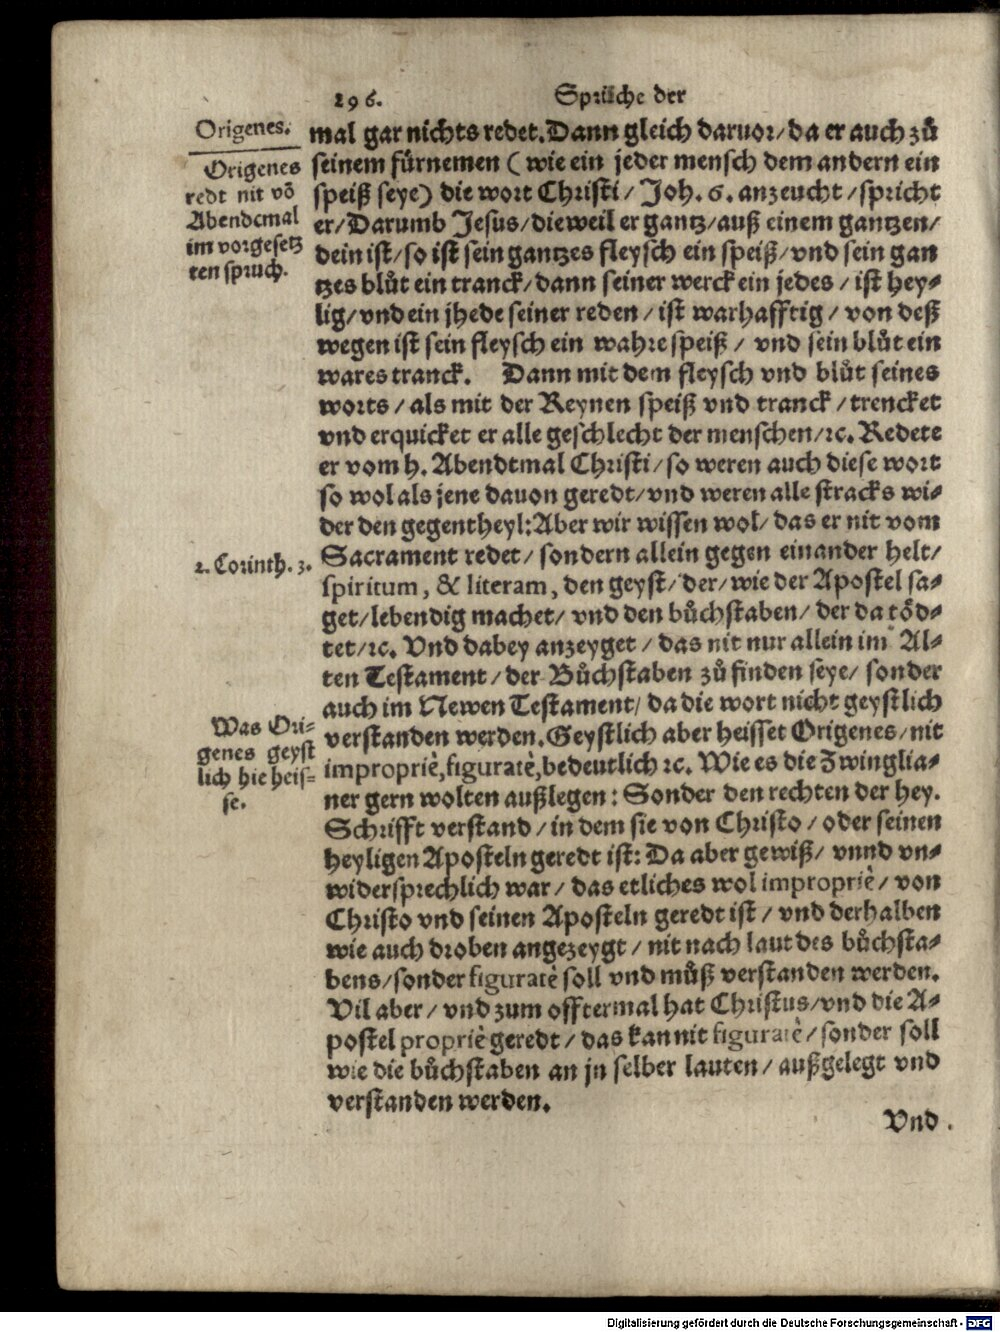 296. Sprüche der
Origenes.
Origenes
redt nit võ
Abendemal
im vorgesetz
ten spruch.
mal gar nichts redet. Dann gleich daruor/ da er auch zů
seinem fürnemen (wie ein jeder mensch dem andern ein
speiß seye) die wort Christi/ Joh. 6. anzeucht/ spricht
er/ Darumb Jesus/ dieweil er gantz/ auß einem gantzen/
dein ist/ so ist sein gantzes fleysch ein speiß/ vnd sein gan
tzes blůt ein tranck/ dann seiner werck ein jedes/ ist hey-
lig/ vnd ein jhede seiner reden/ ist warhafftig/ von deß
wegen ist sein fleysch ein wahre speiß/ vnd sein blůt ein
wares tranck. Dann mit dem fleysch vnd blůt seines
worts/ als mit der Reynen speiß vnd tranck/ trencket
vnd erquicket er alle geschlecht der menschen/ ꝛc. Redete
er vom h. Abendtmal Christi/ so weren auch diese wort
so wol als jene dauon geredt/ vnd weren alle stracks wi-
der den gegentheyl: Aber wir wissen wol/ das er nit vom
2. Corinth. 3.
Sacrament redet/ sondern allein gegen einander helt/
spiritum, & literam, den geyst/ der/ wie der Apostel sa-
get/ lebendig machet/ vnd den bůchstaben/ der da töd-
tet/ ꝛc. Vnd dabey anzeyget/ das nit nur allein im Al-
ten Testament/ der Bůchstaben zů finden seye/ sonder
auch im Newen Testament/ da die wort nicht geystlich
Was Ori-
genes geyst
lich hie heis-
se.
verstanden werden. Geystlich aber heisset Origenes/ nit
impropriè, figuratè, bedeutlich ꝛc. Wie es die Zwinglia-
ner gern wolten außlegen: Sonder den rechten der hey.
Schrifft verstand/ in dem sie von Christo/ oder seinen
heyligen Aposteln geredt ist: Da aber gewiß/ vnnd vn-
widersprechlich war/ das etliches wol impropriè/ von
Christo vnd seinen Aposteln geredt ist/ vnd derhalben
wie auch droben angezeygt/ nit nach laut des bůchsta-
bens/ sonder figuratè soll vnd můß verstanden werden.
Vil aber/ vnd zum offtermal hat Christus/ vnd die A-
postel propriè geredt/ das kan nit figuratè/ sonder soll
wie die bůchstaben an jn selber lauten/ außgelegt vnd
verstanden werden.
Vnd
Digitalisierung gefördert durch die Deutsche Forschungsgemeinschaft - DFG